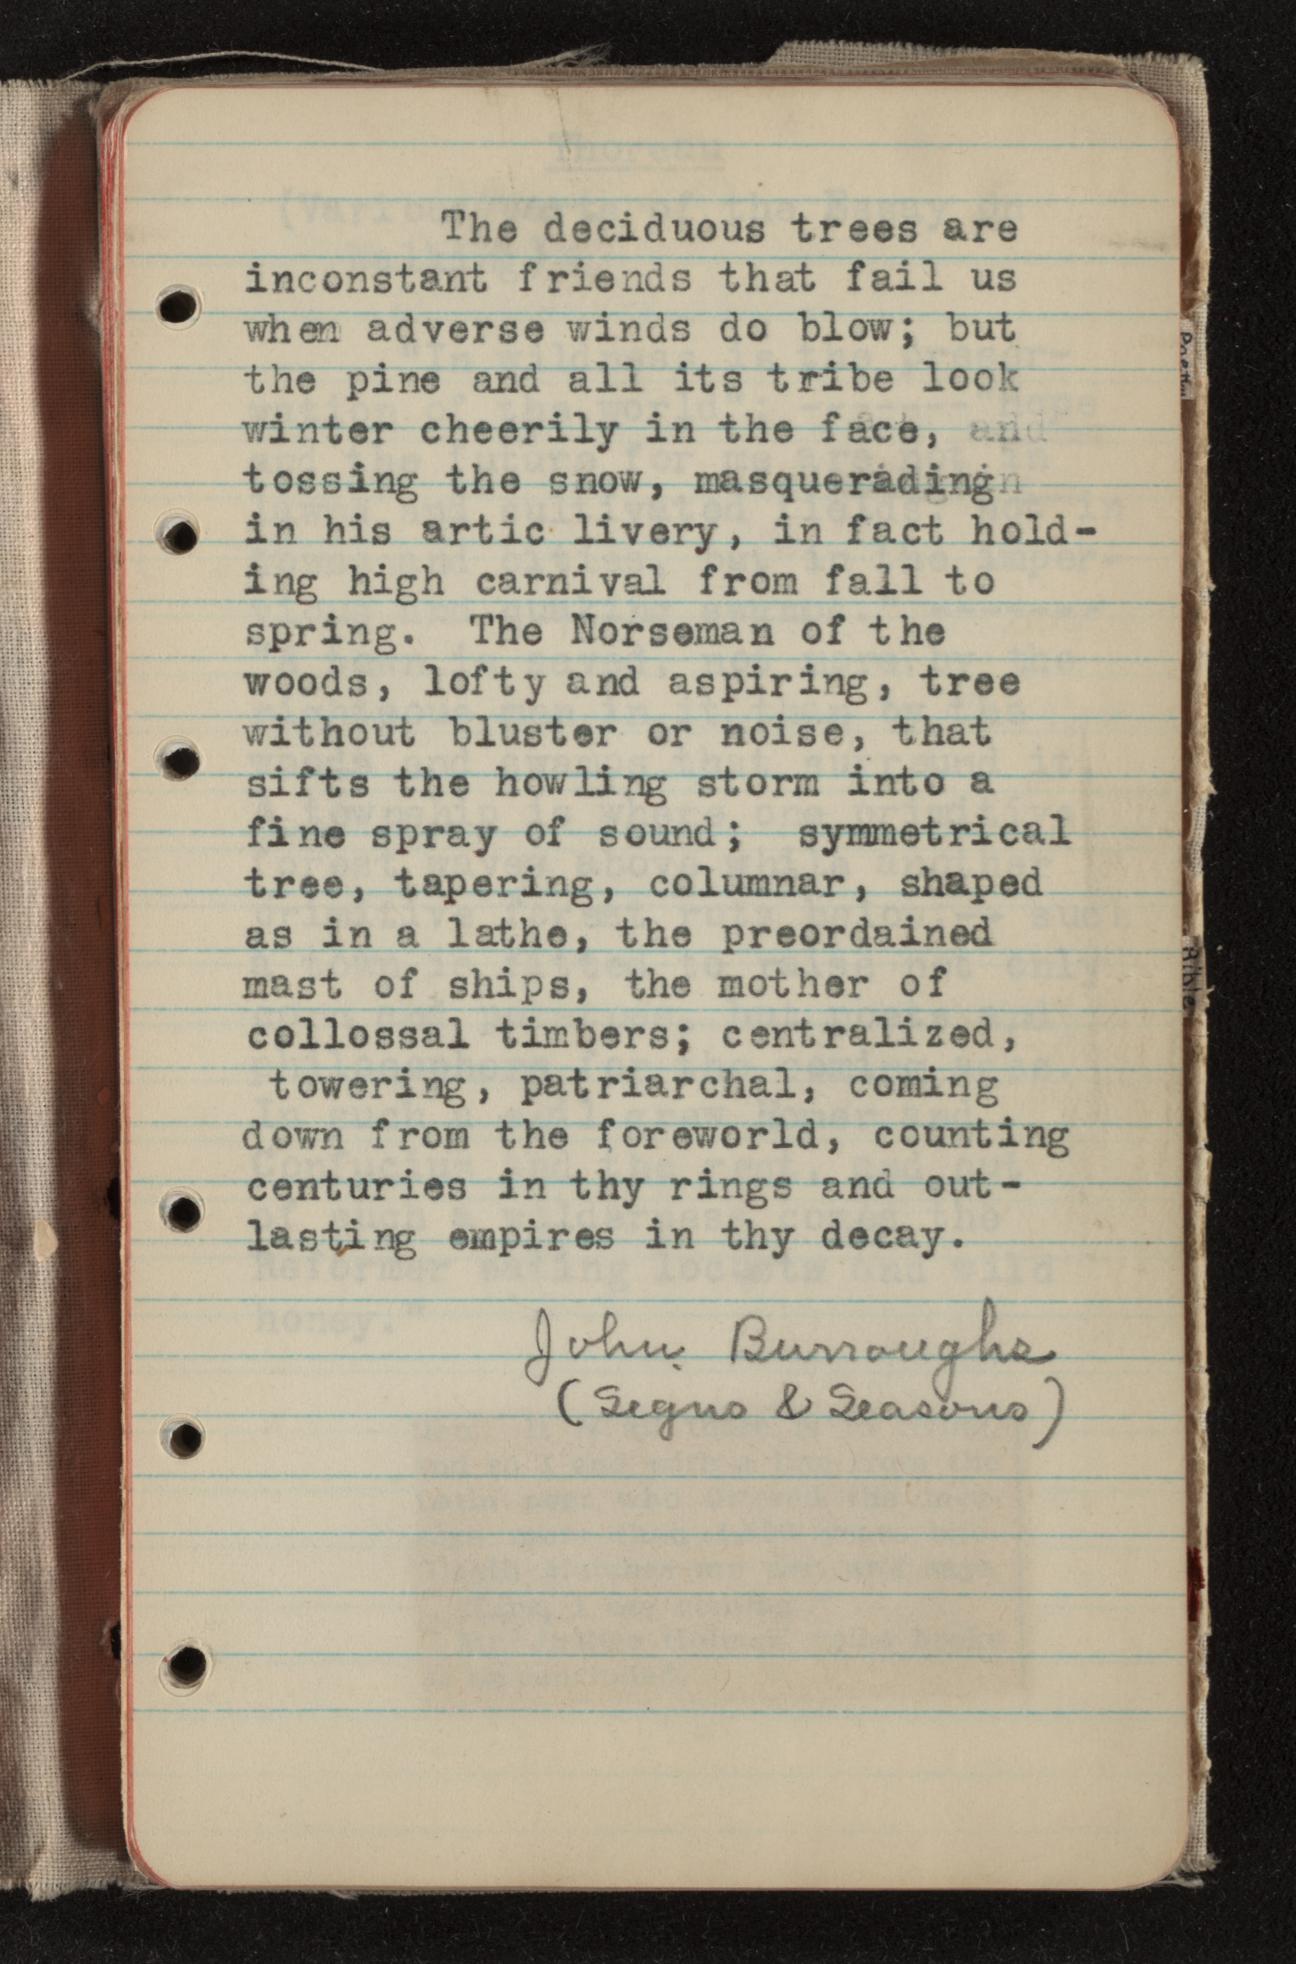 Thoreau
The deciduous trees are
inconstant friends that fail us
when adverse winds do blow; but
the pine and all its tribe look
winter cheerily in the face, and
tossing the snow, masquerading
in his artic livery, in fact hold-
ing high carnival from fall to
spring. The Norseman of the
woods, lofty and aspiring, tree
without bluster or noise, that
sifts the howling storm into a
fine spray of sound; symmetrical
tree, tapering, columnar, shaped
as in a lathe, the preordained
mast of ships, the mother of
collossal timbers; centralized,
towering, patriarchal, coming
down from the foreworld, counting
centuries in thy rings and out-
lasting empires in thy decay.
Reformer eating locusts and wild
honey."
John Burroughs
(Signs & Seasons)
Bible